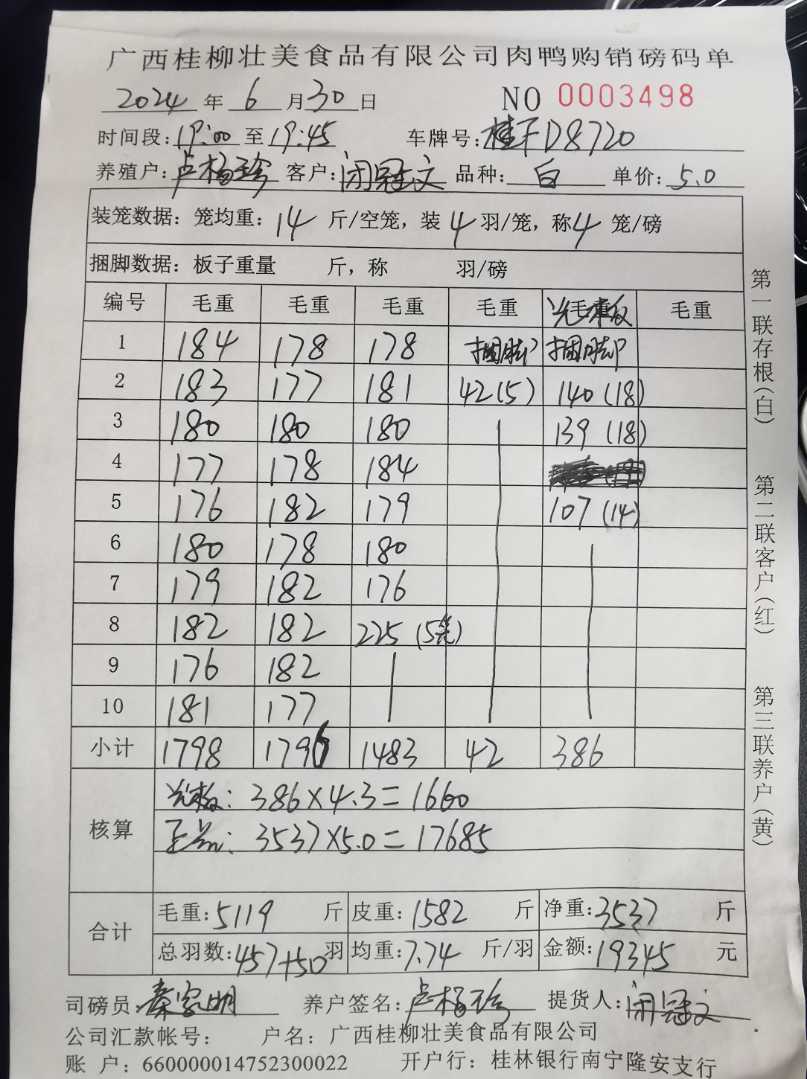 广西桂柳壮美食品有限公司肉鸭购销磅码单
2024 年 6 月 30 日 NO 0003498
时间段: 19:00 至 19:45 车牌号: 桂FD8720
养殖户: 卢杨珍 客户: 闭冠文 品种: 白 单价: 5.0
装笼数据: 笼均重: 14 斤/空笼, 装 4 羽/笼, 称 4 笼/磅
捆脚数据: 板子重量 斤, 称 羽/磅
编号 毛重 毛重 毛重 毛重 光毛板 毛重
1 184 178 178 捆脚 捆脚
2 183 177 181 42(5) 140(18)
3 180 180 180 139(18)
4 177 178 184
5 176 182 179 107(14)
6 180 178 180
7 179 182 176
8 182 182 225(5笼)
9 176 182
10 181 177
小计 1798 1796 1483 42 386
核算
光板: 386×4.3=1660
正品: 3537×5.0=17685
合计
毛重: 5119 斤 皮重: 1582 斤 净重: 3537 斤
总羽数: 457+50 羽 均重: 7.74 斤/羽 金额: 19345 元
司磅员 秦家明 养户签名: 卢杨珍 提货人: 闭冠文
公司汇款帐号: 户名: 广西桂柳壮美食品有限公司
账 户: 660000014752300022 开户行: 桂林银行南宁隆安支行
第一联存根(白) 第二联客户(红) 第三联养户(黄)